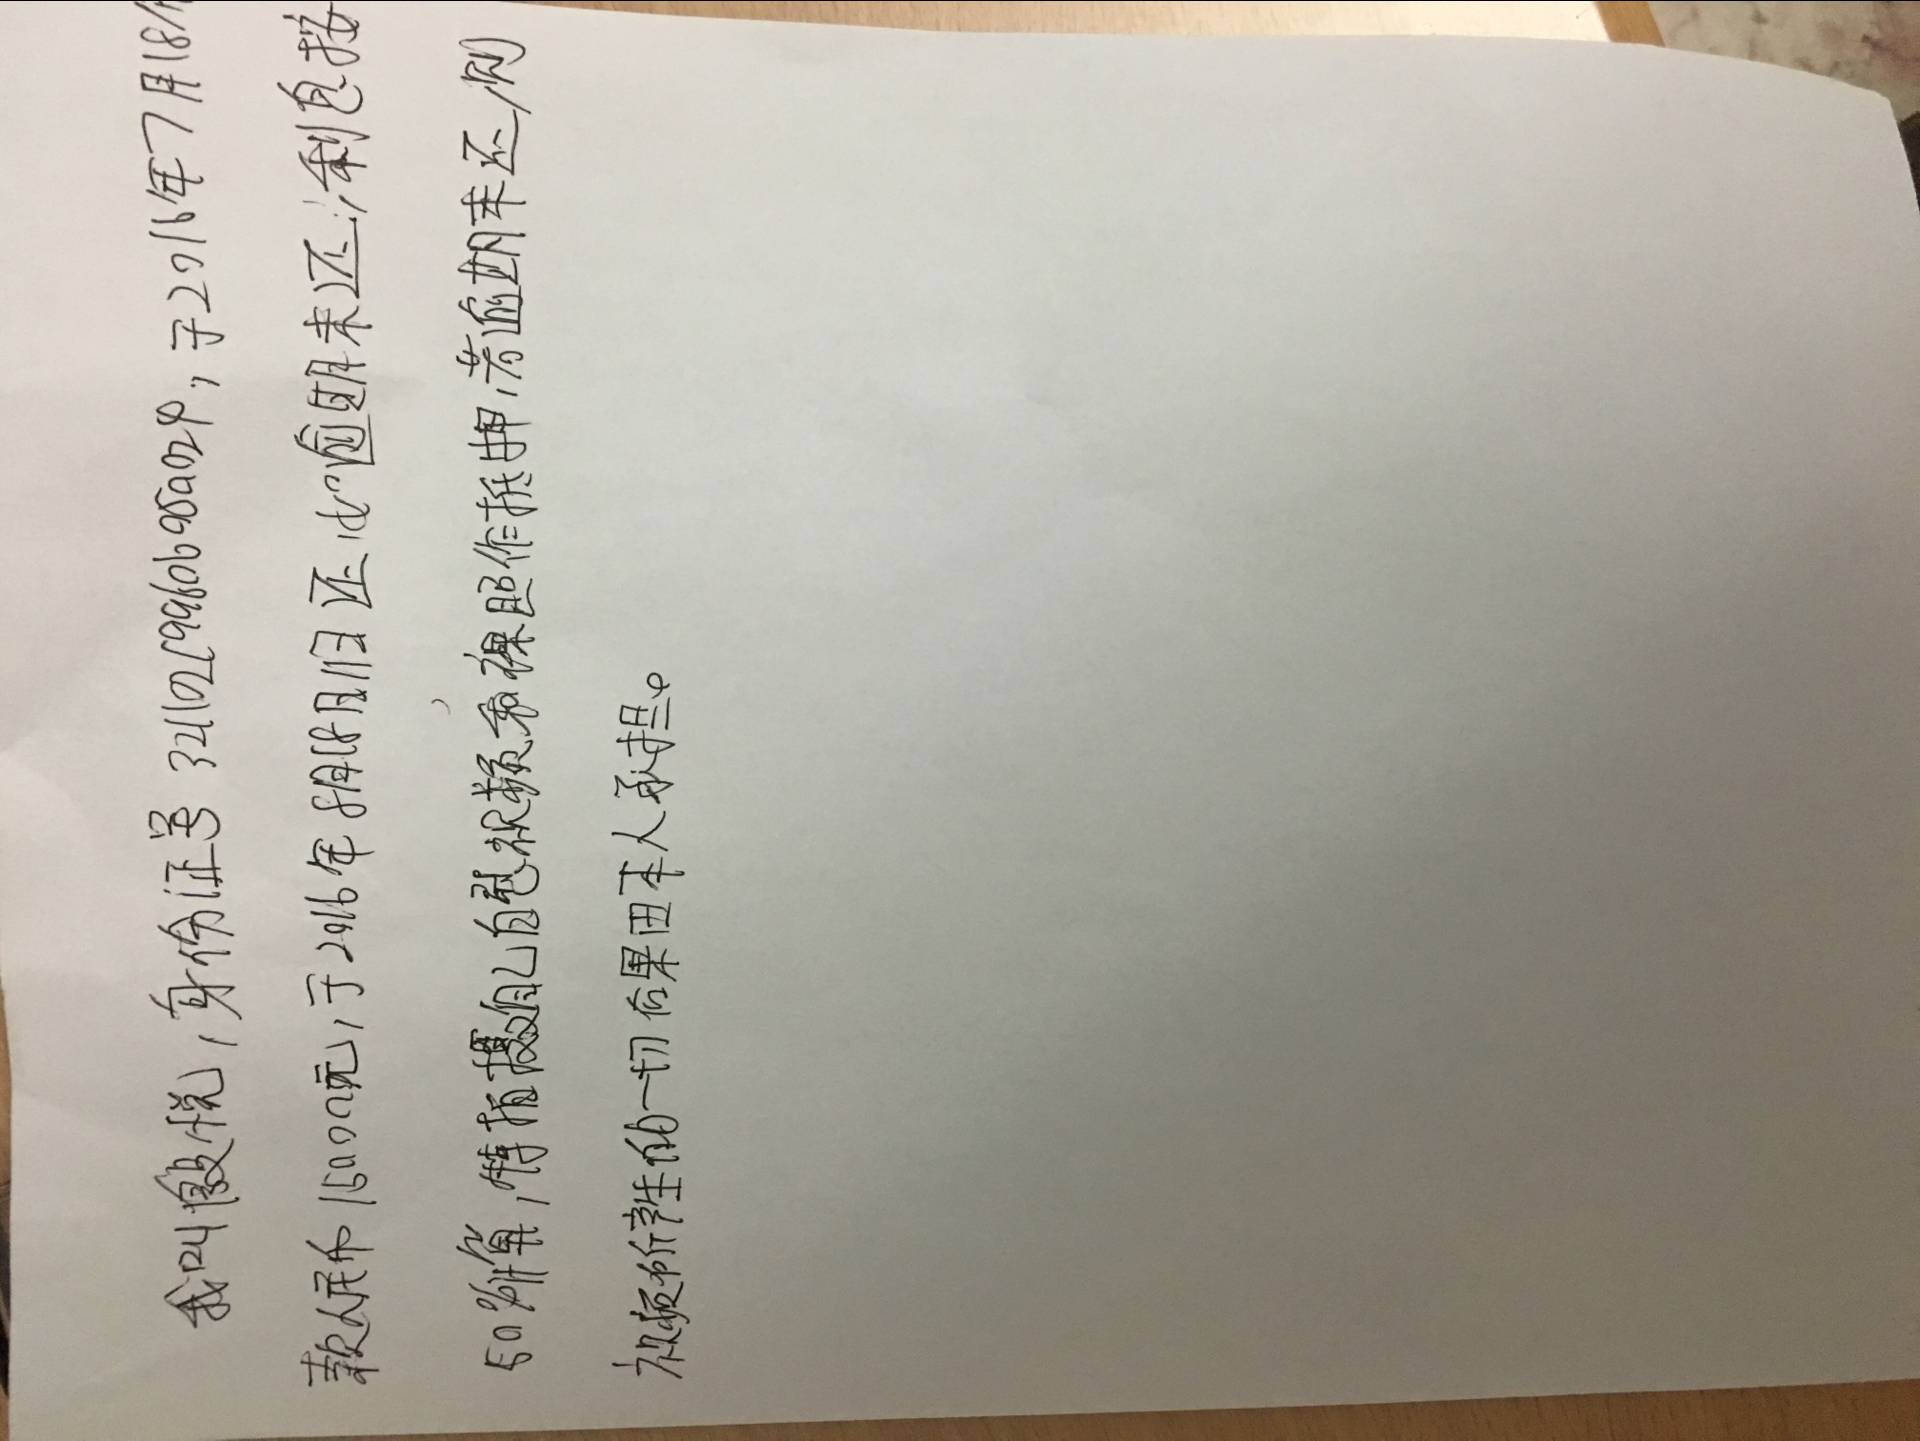 我叫，身份证号，于2016年7月18
款人民币15000元，于2016年8月18日归还，如逾期未还，利息按
50%所算，特拍摄自己自慰视频和裸照作抵押，若逾期未还，则
视频所产生的一切后果由本人承担。